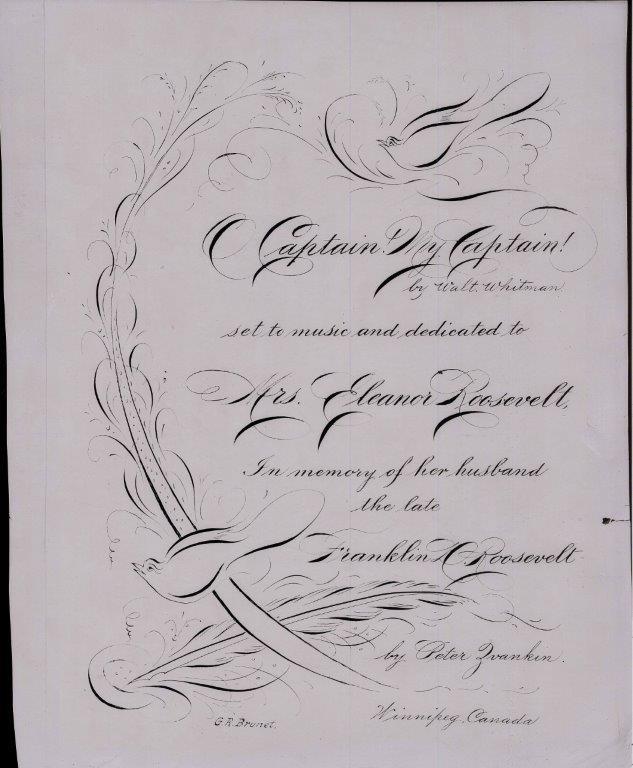 O Captain! My Captain!
by Walt. Whitman.
set to music and dedicated to
Mrs. Eleanor Roosevelt,
In memory of her husband
the late
Franklin D. Roosevelt
by Peter Zvankin.
Winnipeg, Canada
G.R. Brunet.